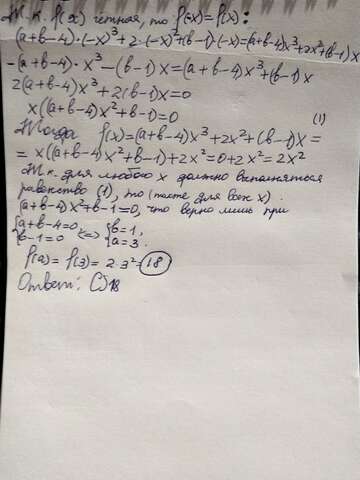 Т.к. f(x) чётная, то f(-x)=f(x):
(a+b-4)·(-x)³+2·(-x)²+(b-1)·(-x)=(a+b-4)x³+2x²+(b-1)x
-(a+b-4)·x³-(b-1)x=(a+b-4)x³+(b-1)x
2(a+b-4)x³+2(b-1)x=0
x((a+b-4)x²+b-1)=0 (1)
Тогда f(x)=(a+b-4)x³+2x²+(b-1)x=
=x((a+b-4)x²+b-1)+2x²=0+2x²=2x²
Т.к. для любого x должно выполняться
равенство (1), то (также для всех x):
(a+b-4)x²+b-1=0, что верно лишь при
{a+b-4=0 <=> {b=1,
{b-1=0 {a=3.
f(a)=f(3)=2·3²=18
Ответ: C) 18